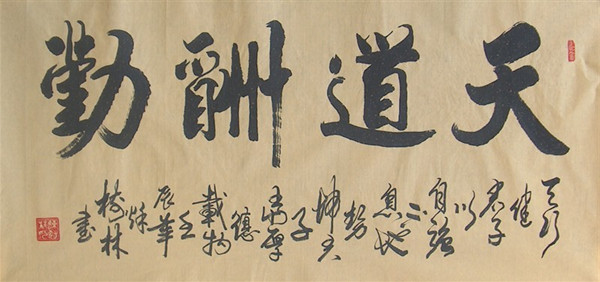 天道酬勤
天行
健
君子
以
自強
不
息地
勢
坤君
子
厚
德
載物
壬
辰
樹林
書